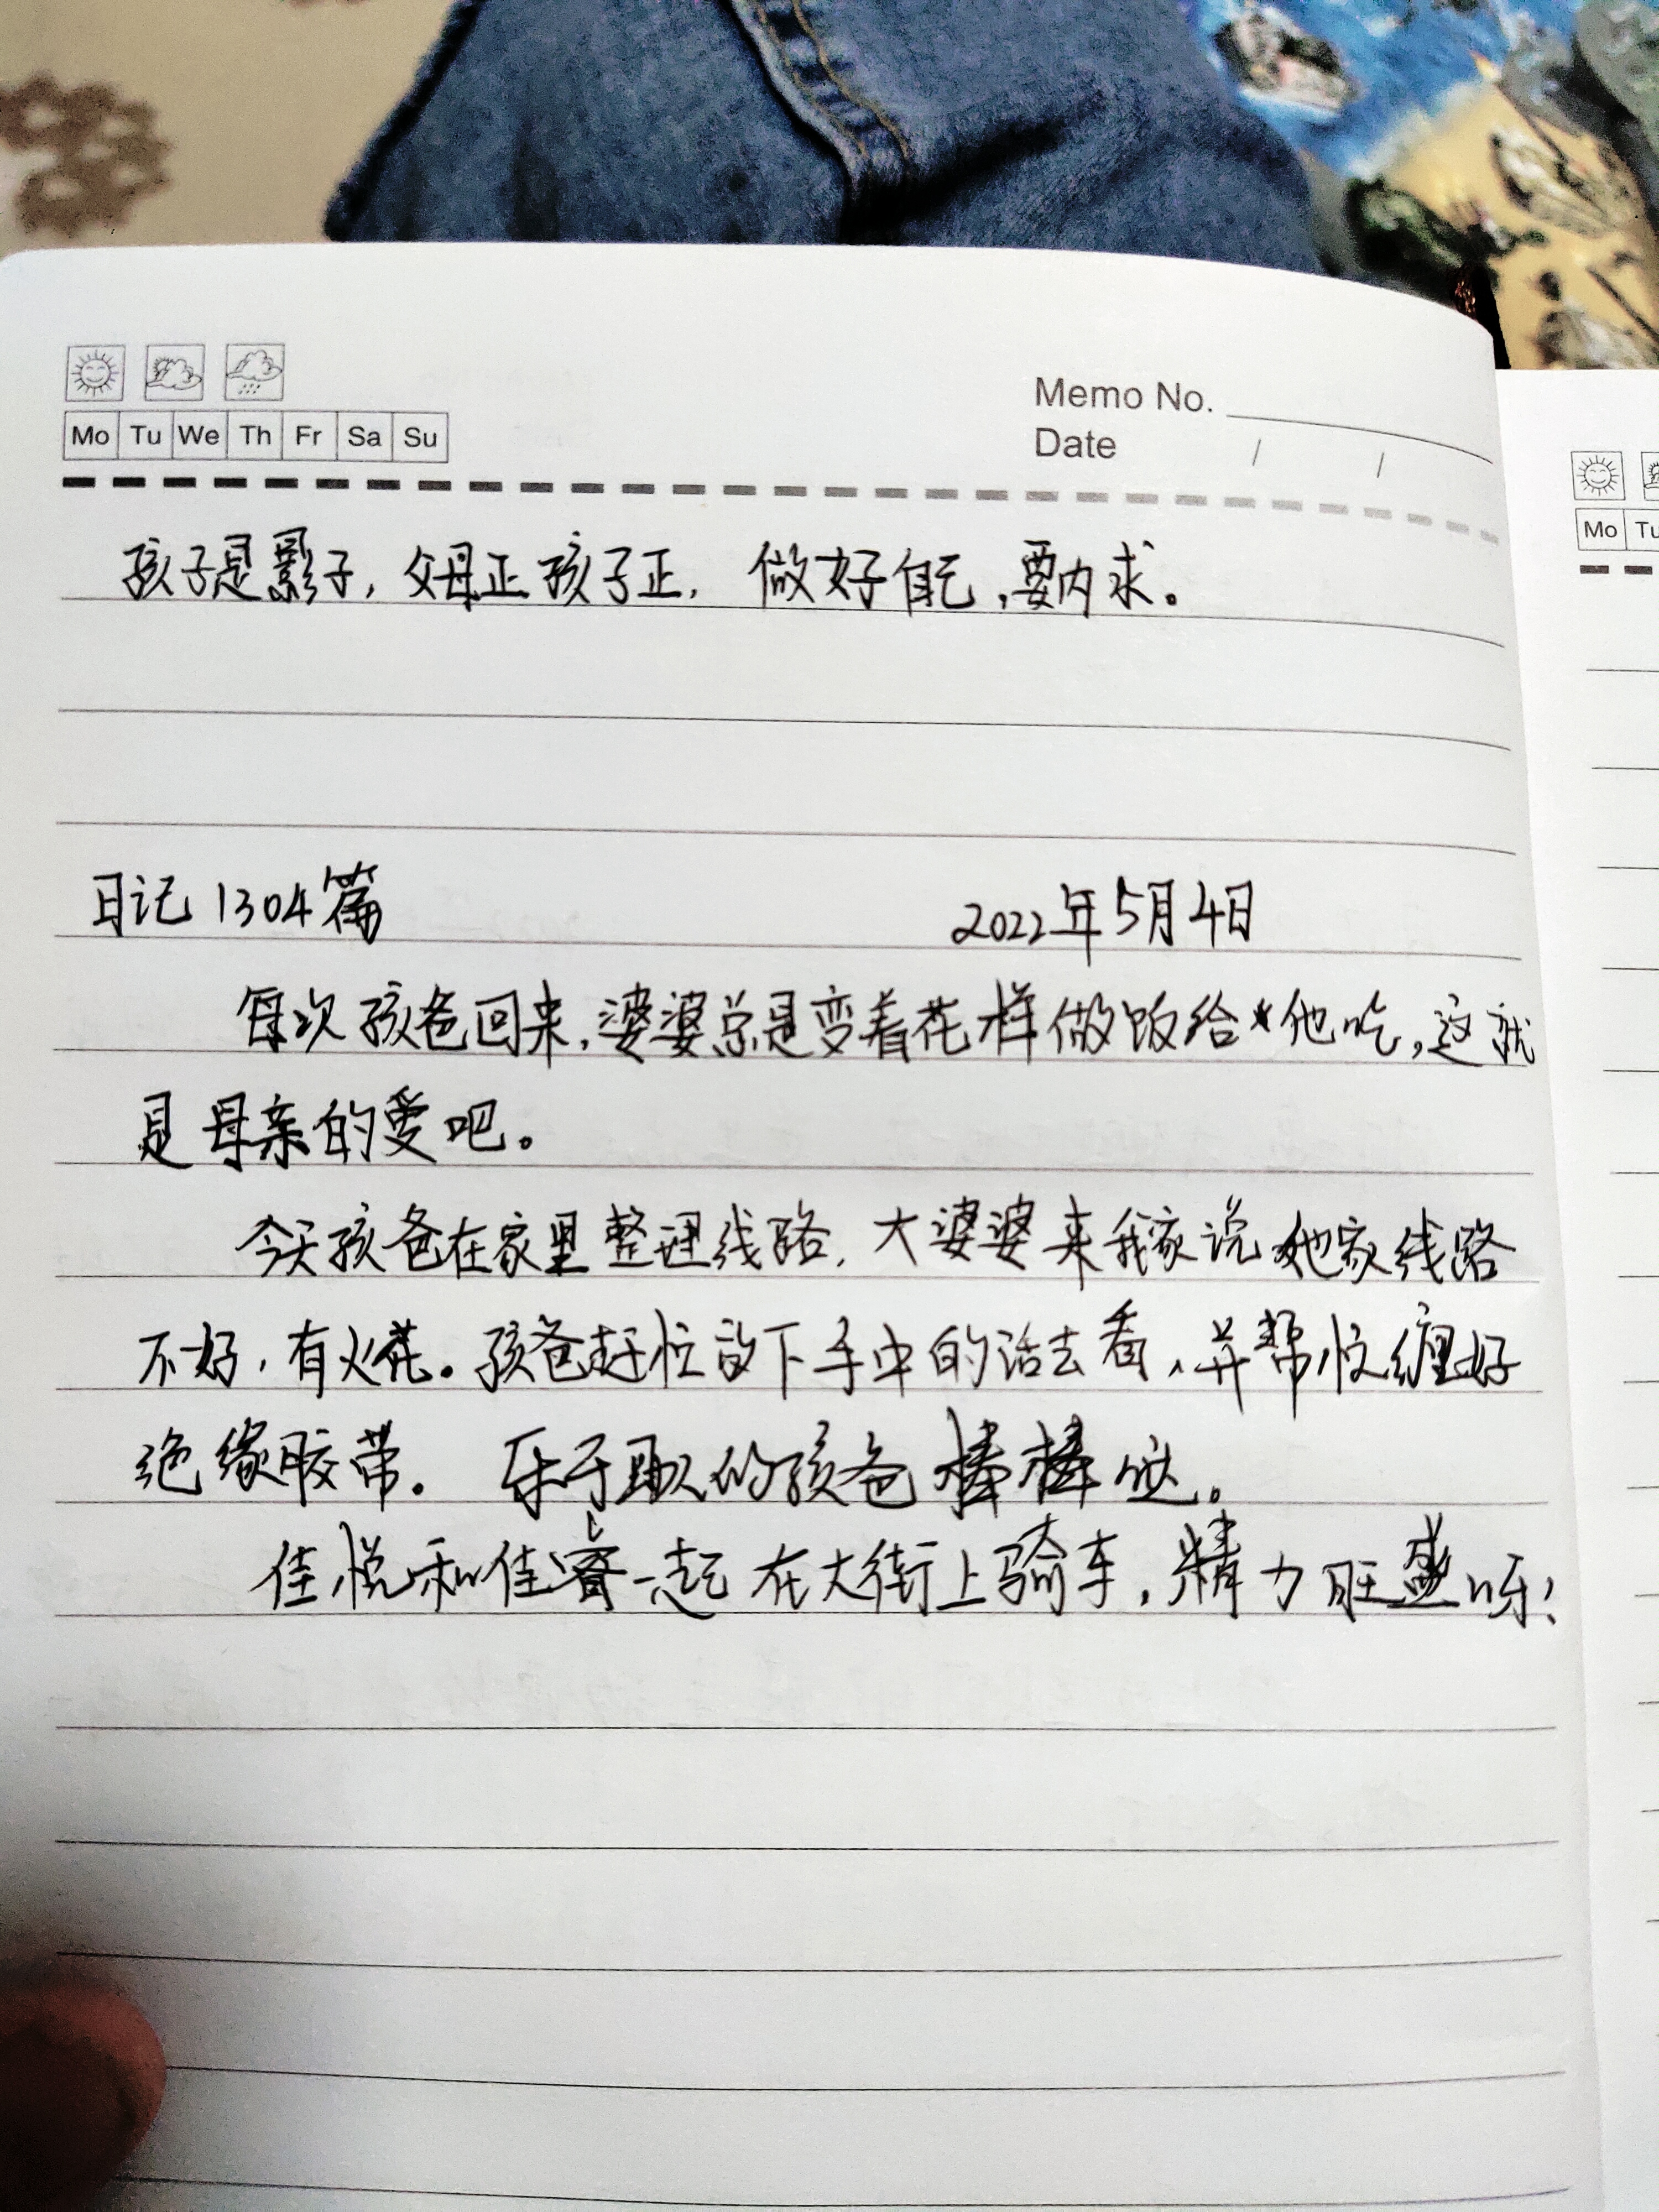 Memo No.
Mo Tu We Th Fr Sa Su
Date / /
Mo Tu
孩子是影子，父母正孩子正，做好自己，要内求。
日记1304篇 2022年5月4日
每次孩爸回来，婆婆总是变着花样做饭给他吃，这就
是母亲的爱吧。
今天孩爸在家里整理线路，大婆婆来我家说她家线路
不好，有火花。孩爸赶忙放下手中的活去看，并帮忙缠好
绝缘胶带。乐于助人的孩爸棒棒哒。
佳悦和佳睿一起在大街上骑车，精力旺盛呀！